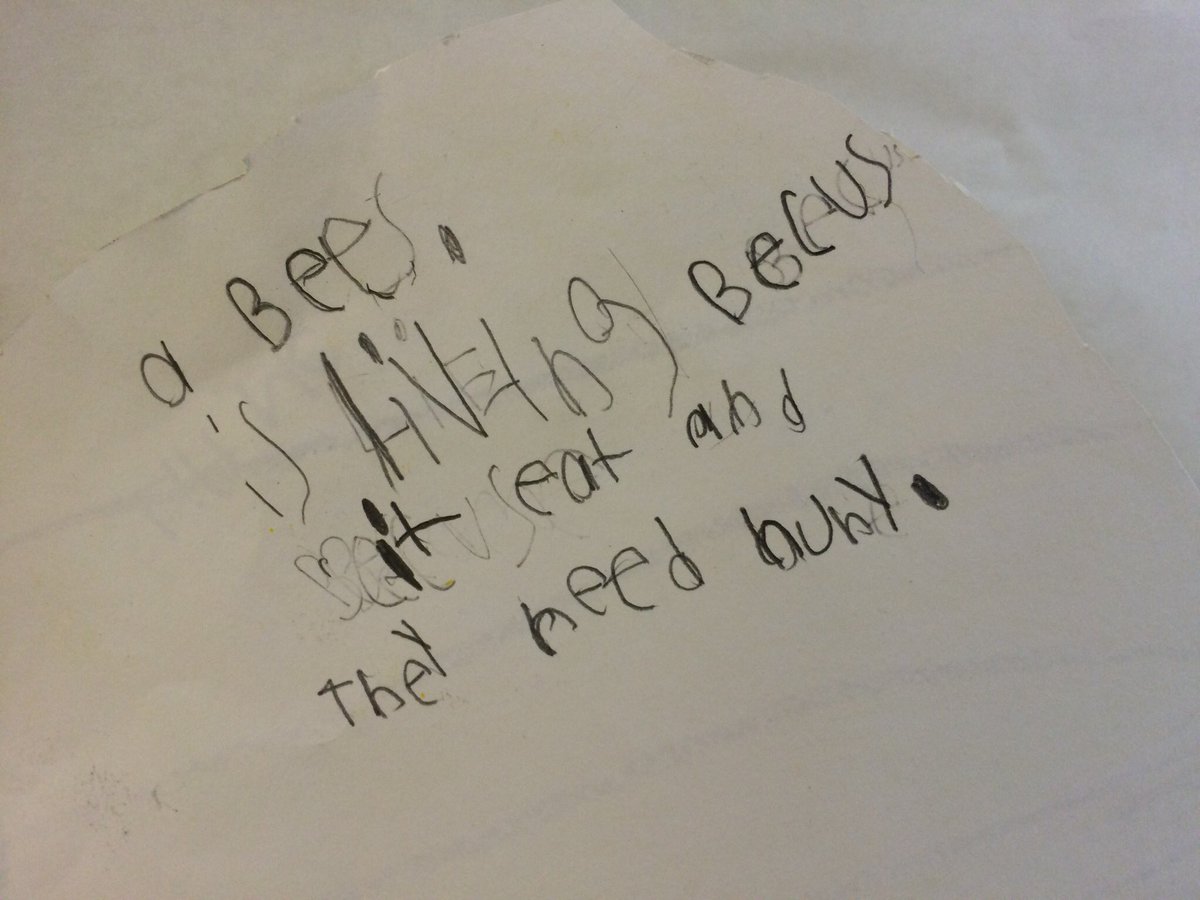 a Bees.
is liveing Becus
it eat and
they need huny.